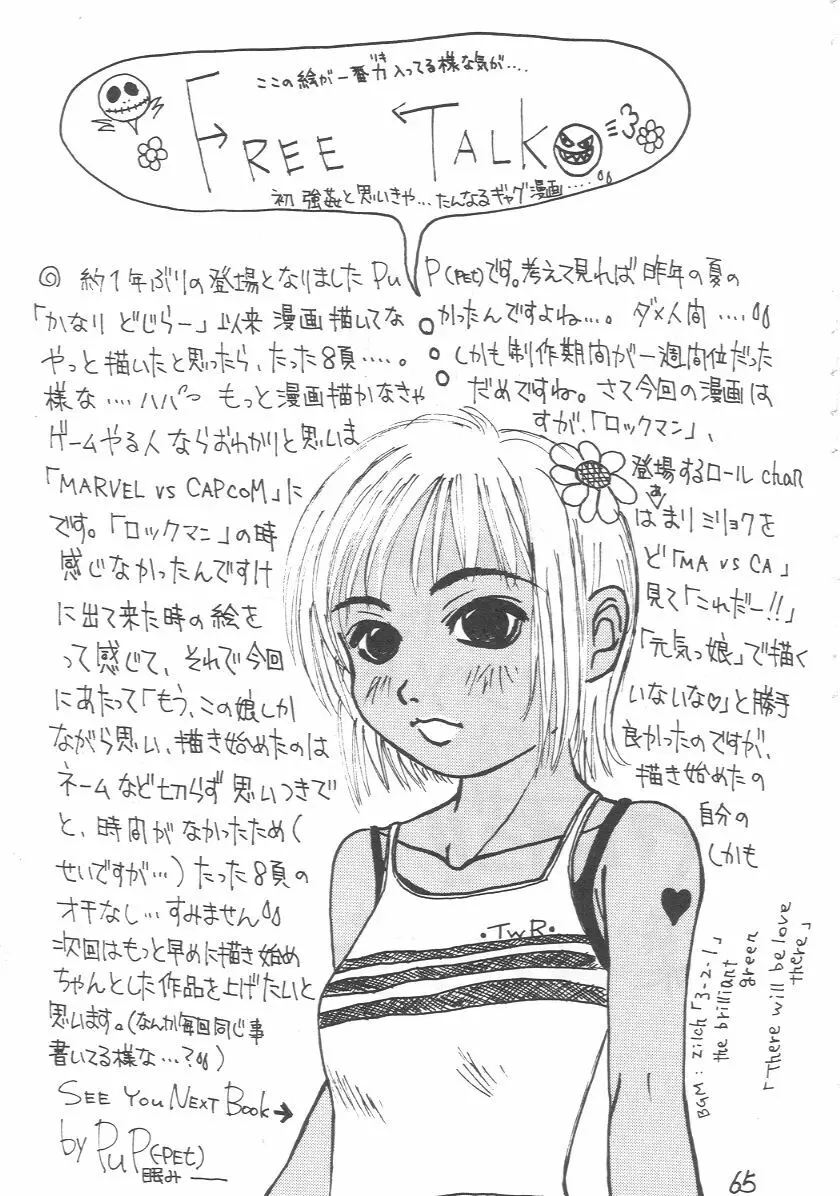 ここの絵が一番力入ってる様な気が....
りき
FREE TALK
初 強姦と思いきや...たんなるギャグ漫画....
◎ 約1年ぶりの登場となりましたPuP(PEt)です。考えて見れば昨年の夏の
「かなり どじらー」以来 漫画描いてなかったんですよね...。ダメ人間....
やっと描いたと思ったら、たった8頁....。しかも制作期間が一週間位だった
様な.... もっと漫画描かなきゃだめですね。さて今回の漫画は
ゲームやる人ならおわかりと思いますが、「ロックマン」、
「MARVEL vs CAPCOM」に登場するロールchan
です。「ロックマン」の時はあまりミリョクを
感じなかったんですけど「MA vs CA」
に出て来た時の絵を見て「これだー!!」
って感じで、それで今回「元気っ娘」で描く
にあたって「もう、この娘しかいないな♡」と勝手
ながら思い、描き始めたのは良かったのですが、
ネームなど切らず思いつきで描き始めたの
と、時間がなかったため(自分の
せいですが...)たった8頁のしかも
オチなし...すみません
次回はもっと早めに描き始め
ちゃんとした作品を上げたいと
思います。(なんか毎回同じ事
書いてる様な...?)
SEE YOU NEXT BOOK →
by PuP(-PEt)
眠み
・TWR・
BGM: zilch「3-2-1」
the brilliant green
「There will be love there」
65